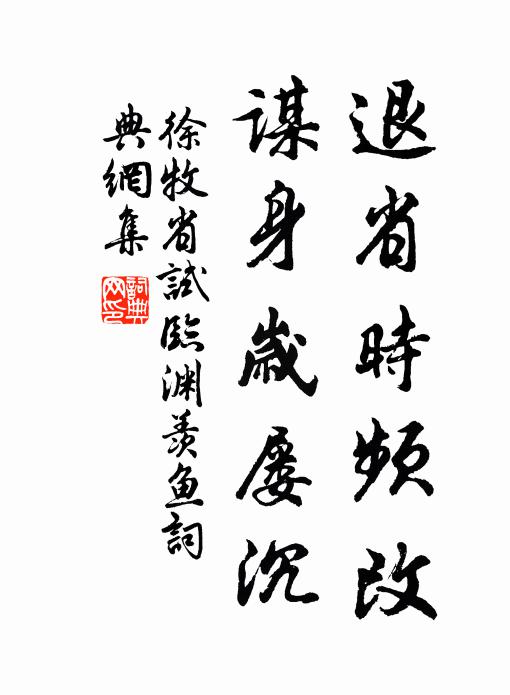 退省時頻改
謀身歲屢沉
徐牧省試臨渊羨魚詞
典網集
詞典
网印